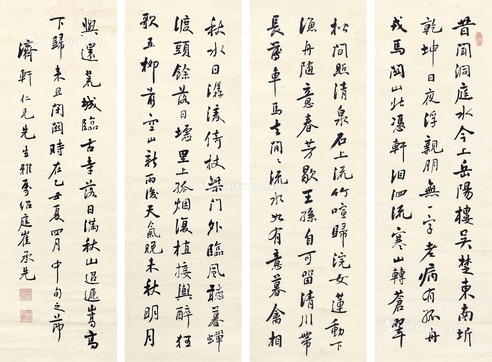 昔聞洞庭水今上岳陽樓吳楚東南坼
乾坤日夜浮親朋無一字老病有孤舟
戎馬關山北憑軒泗流寒山轉蒼翠
松間照清泉石上流竹喧歸浣女蓮動下
漁舟隨意春芳歇王孫自可留清川帶
長薄車馬去閒々流水如有意暮禽相
秋水日潺湲倚杖柴門外臨風聽暮蟬
渡頭餘落日墟里上孤烟復值接輿醉狂
歌五柳前空山新雨後天氣晚來秋明月
與還荒城臨古落日滿秋山迢遞嵩高
下歸來且閉關時在乙丑夏四月中旬之節
濟軒仁兄先生雅屬紹庭崔承先